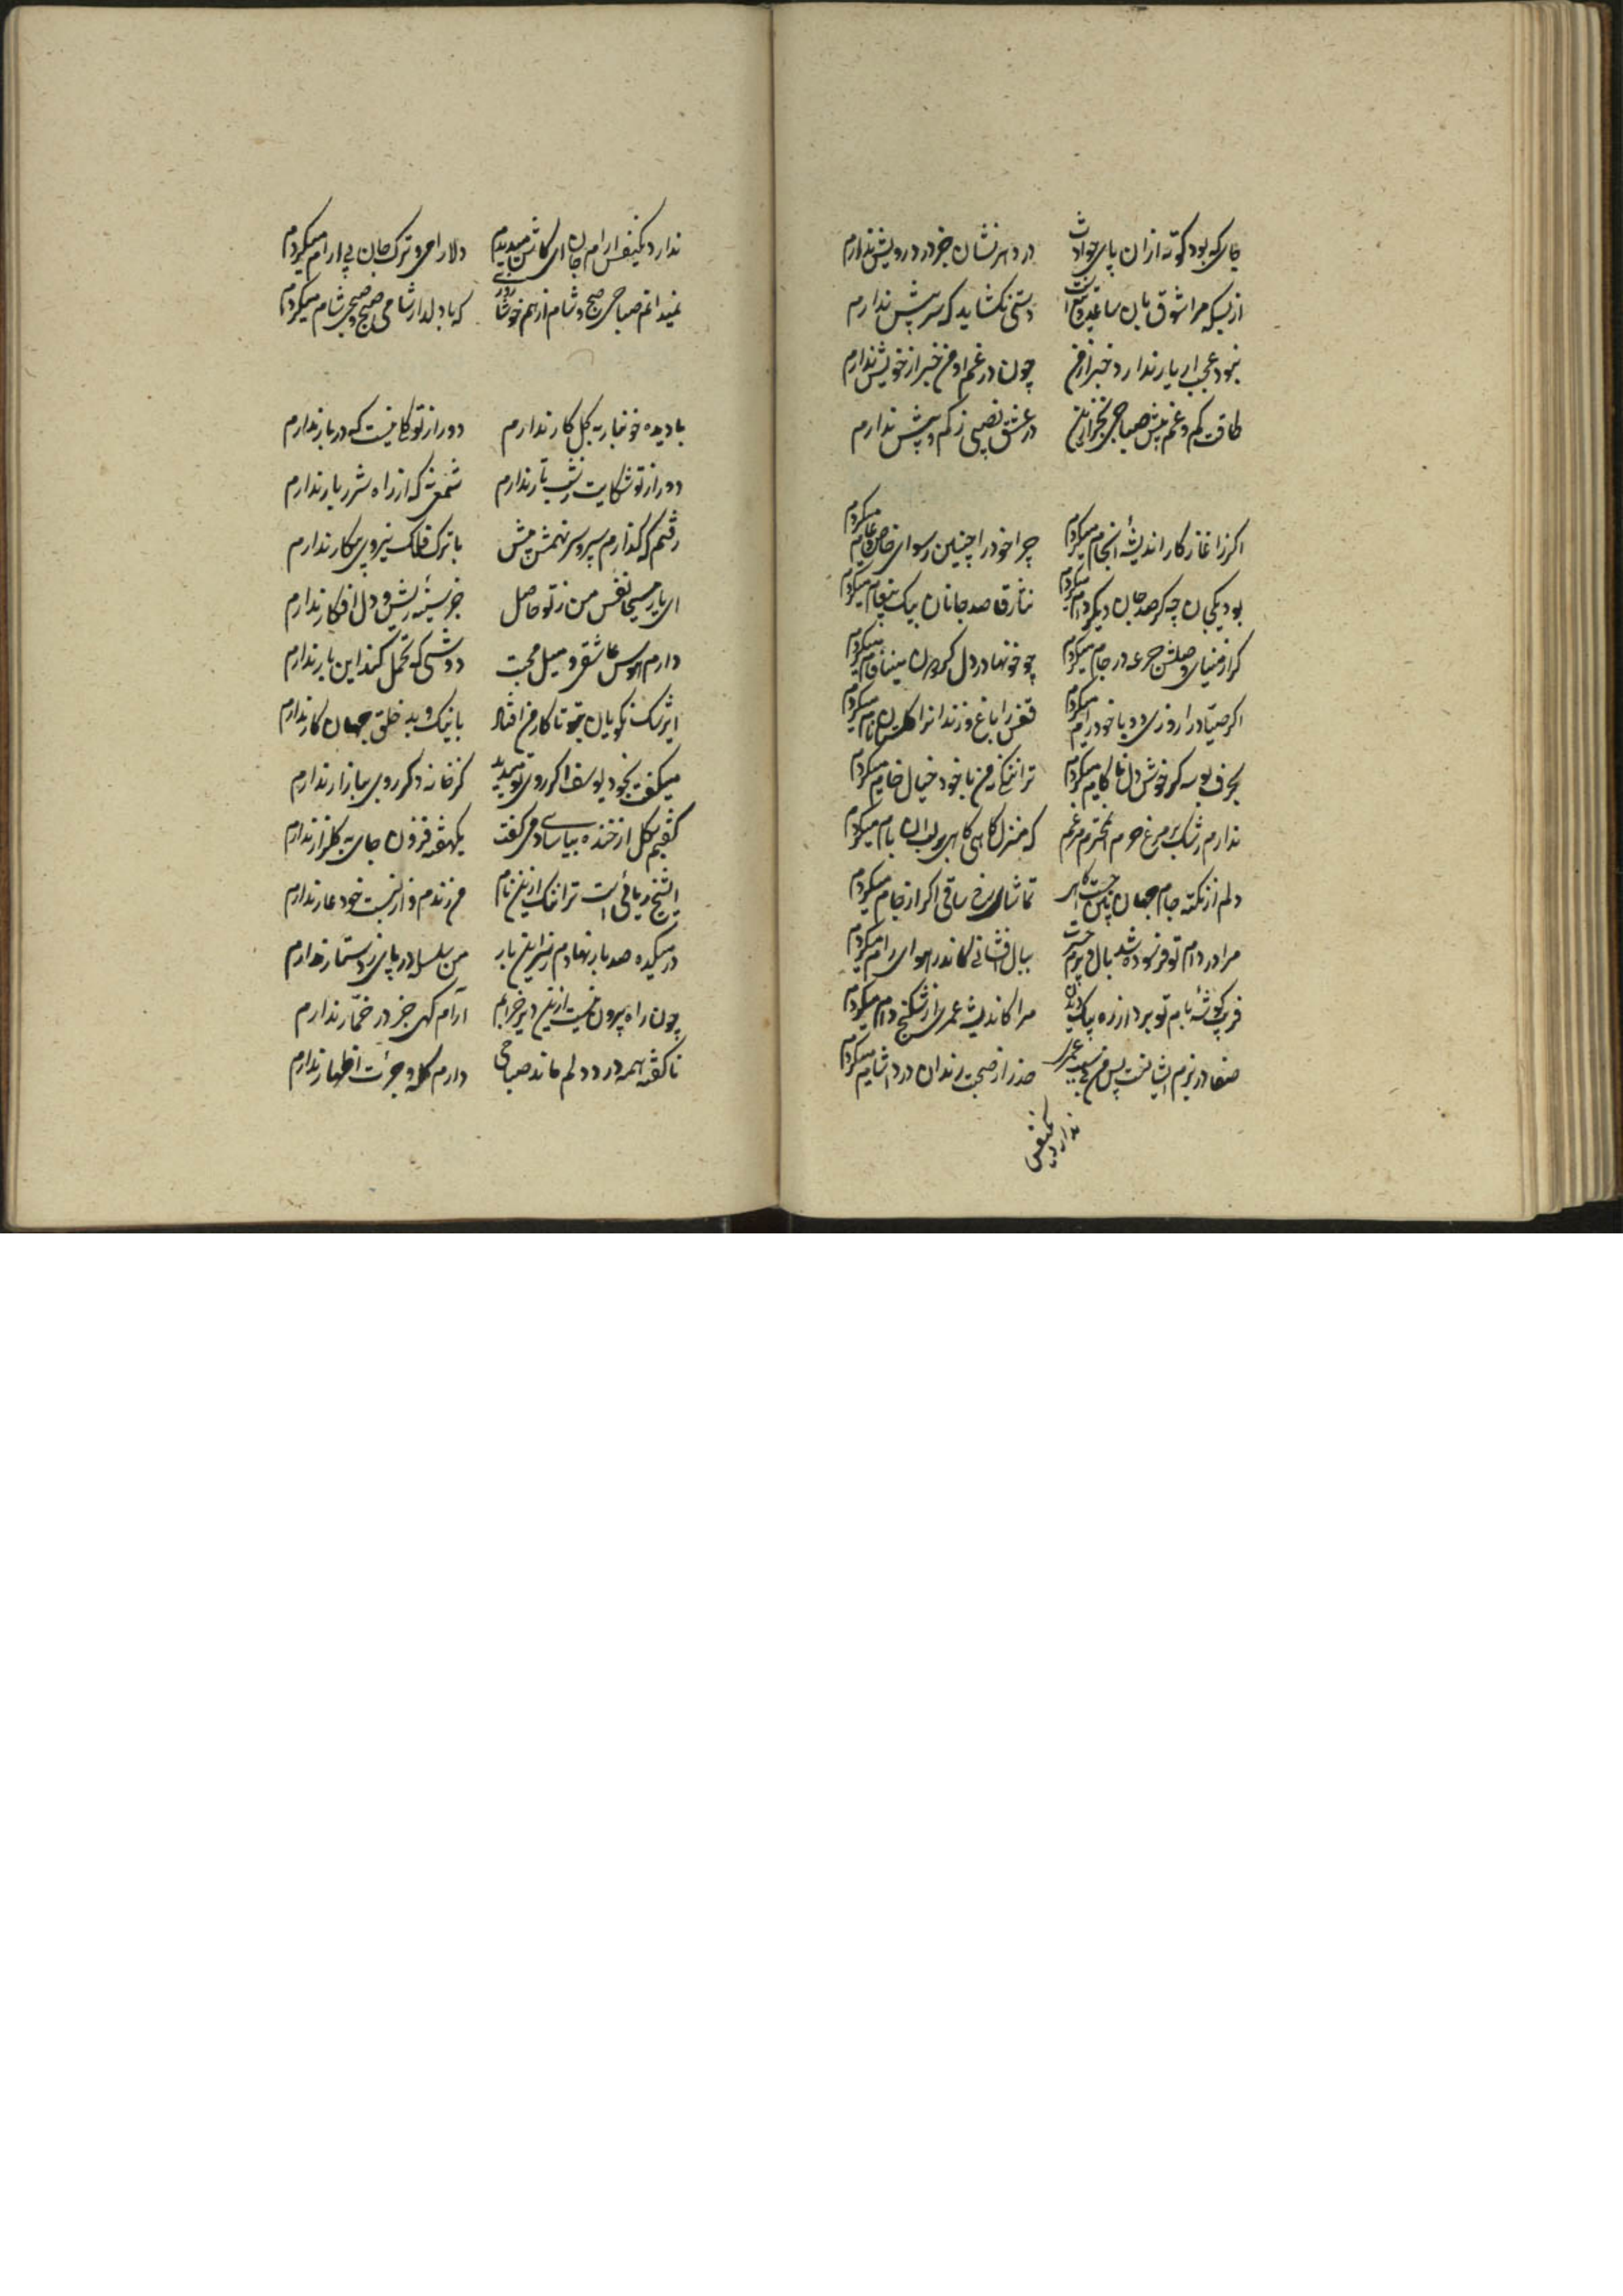 جای که بود کوته ازان پای حوادث در دهر نشان جز در درویش ندارم
از بسکه مرا شوق بان ساعد و دست است دستی نکشاید که سر پیش ندارم
نبود عجب ار یار ندارد خبر از من چون در غم او من خبر از خویش ندارم
طاقت کم و غم بیش صباحی بجز از این در عشق نصیبی ز کم و بیش ندارم
اکر ز اغاز کار اندیشهٔ انجام میکردم چرا خود را چنین رسوای خاص و عام میکردم
بود یکجان چه کر صد جان دیکر وام میکردم نثار قاصد جانان بیک پیغام میکردم
کر از مینای وصلش جرعه در جام میکردم چو خونها در دل مینا
اکر صیاد را روزی دو با خود رام میکردم قفس را باغ و زندانرا نام میکردم
بحرف بوسه کر خوش دل ناکام میکردم ترا ننک از من با خود خیال خام میکردم
ندارم رشک بر مرغ حرم مرغم که منزل کاهی کاهی بر لب ان بام میکردم
دلم از نکته جام جهان تماشای رخ ساقی اکر از جام میکردم
مرا در دام تو فرسوده شد بال و پرم ببال افشانی کاندر هوای رام میکردم
فریب کوشهٔ بام تو برد از ره مرا کاندیشه عمری از شکنج دام میکردم
صفا در بزم ایشانست پس من بی سبب عمری حذر از صحبت رندان درد اشام میکردم
ندارد یکنفس
ندارد یکنفس ارام جان ای کاش میدیدم دلارامی و ترک جان بی ارام میکردم
نمیدانم صباحی صبح و شام از هم خوشا روزی که با دلدار شامی صبح و صبحی شام میکردم
با دیده خونبار به کل کار ندارم دور از تو کلی نیست که در بار ندارم
دور از تو شکایت ز شب تار ندارم شمعی که از اه شرر بار ندارم
رفتم که کذارم سپر و سر نهمش پیش با ترک فلک نیروی پیکار ندارم
ای یار مسیحا نفس من ز تو حاصل جز سینهٔ ریش و دل افکار ندارم
دارم هوس عاشقی و میل محبت دوشی که تحمل کند این بار ندارم
نکویان تو تا کار من افتاد با نیک و بد خلق جهان کار ندارم
میکفت بخود یوسف اکر روی تو میدید کز خانه دکر روی ببازار ندارم
کفتم بکل از خنده بیاسا دمی کفت یکهفته فزون جای به کلزار ندارم
ای شیخ ریائی است ترا ننک ازین نام من رندم و از نسبت خود عار ندارم
در میکده صد بار نهادم ز سر این بار من سلسله در پای ز دستار ندارم
چون راه برون نیست ازین دیر خرابم آرام کهی جز در خمّار ندارم
ناکفته همه درد دلم ماند صباحی دارم کله و جرئت اظهار ندارم